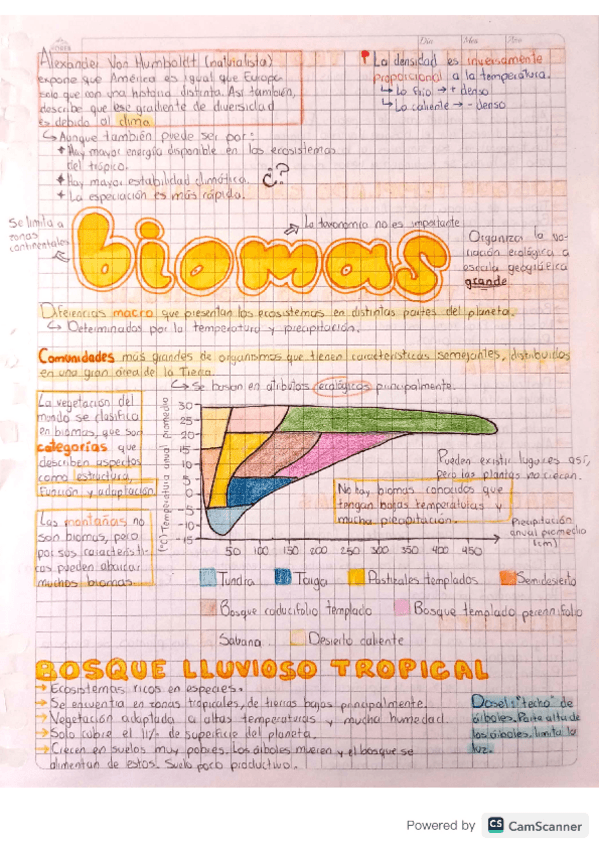 Día Mes Año
Alexander Von Humboldt (naturalista)
expone que América es igual que Europa
solo que con una historia distinta. Así también,
describe que ese gradiente de diversidad
es debido al clima.
↳ Aunque también puede ser por:
Hay mayor energía disponible en los ecosistemas
del trópico.
Hay mayor estabilidad climática.
La especiación es más rápida.
¿?
La densidad es inversamente
proporcional a la temperatura.
↳ Lo frío → + denso
↳ Lo caliente → - denso
Se limita a
zonas
continentales
La taxonomía no es importante
biomas
Organiza la va-
riación ecológica a
escala geográfica
grande.
Diferencias macro que presentan los ecosistemas en distintas partes del planeta.
↳ Determinados por la temperatura y precipitación.
Comunidades más grandes de organismos que tienen características semejantes, distribuidos
en una gran área de la Tierra.
↳ Se basan en atributos ecológicos principalmente.
La vegetación del
mundo se clasifica
en biomas, que son
categorías que
describen aspectos
como estructura,
función y adaptación
Las montañas no
son biomas, pero
por sus característi-
cas pueden abarcar
muchos biomas.
(°C) Temperatura anual promedio
30
25
20
15
10
5
0
-5
-10
-15
50 100 150 200 250 300 350 400 450
Pueden existir lugares así,
pero las plantas no crecen.
No hay biomas conocidos que
tengan bajas temperaturas y
mucha precipitación.
Precipitación
anual promedio
(cm)
Tundra Taiga Pastizales templados Semidesierto
Bosque caducifolio templado Bosque templado perennifolio
Sabana Desierto caliente
BOSQUE LLUVIOSO TROPICAL
→ Ecosistemas ricos en especies.
→ Se encuentra en zonas tropicales, de tierras bajas principalmente.
→ Vegetación adaptada a altas temperaturas y mucha humedad.
→ Solo cubre el 11% de superficie del planeta.
→ Crecen en suelos muy pobres. Los árboles mueren y el bosque se
alimentan de estos. Suelo poco productivo.
Dosel: "techo" de
árboles. Parte alta de
los árboles, limita la
luz.
Powered by CS CamScanner